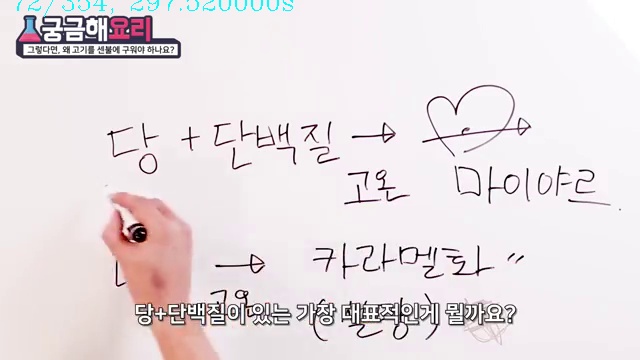 72/354, 297.520000s
궁금해요리
그렇다면, 왜 고기를 센불에 구워야 하나요?
당 + 단백질 → →
고온 마이야르.
→ 카라멜화 〃
고온
당+단백질이 있는 가장 대표적인게 뭘까요?